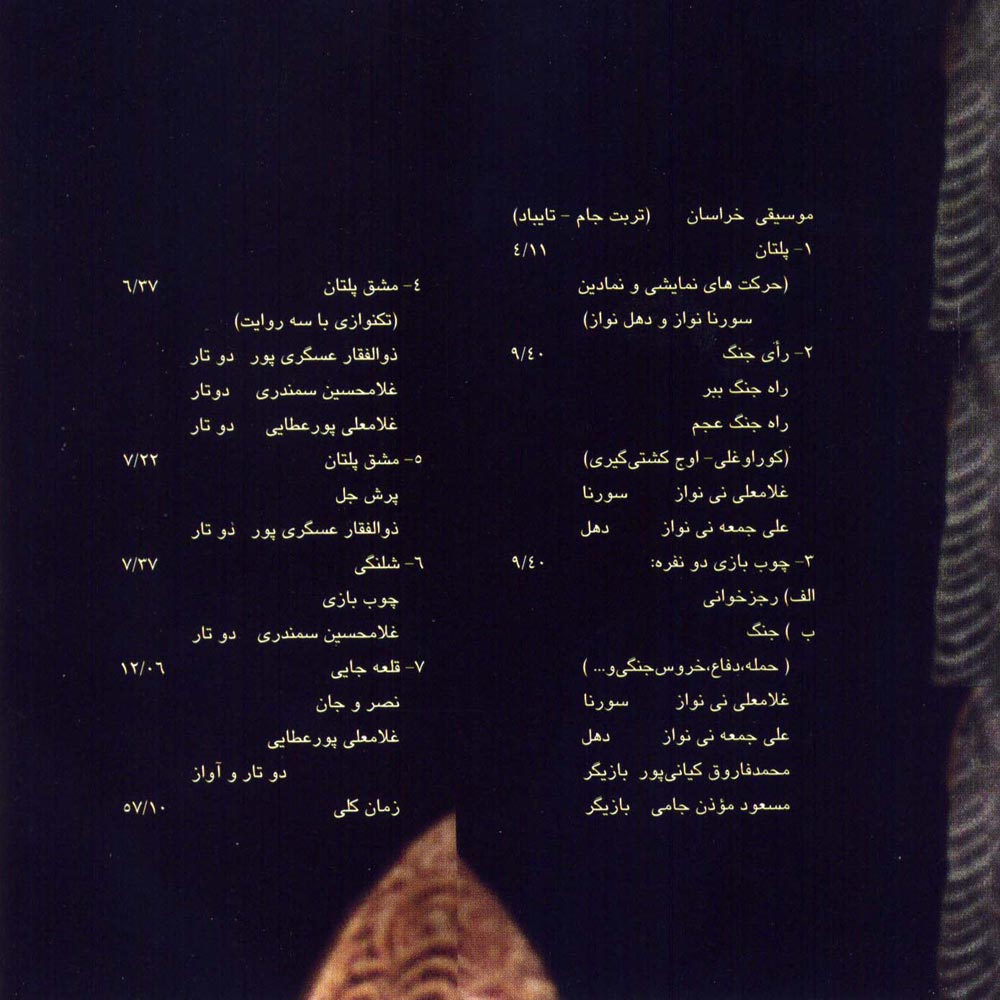 موسیقی خراسان (تربت جام - تایباد)
۱- پلتان ٤/۱۱
(حرکت های نمایشی و نمادین
سورنا نواز و دهل نواز)
۲- رأی جنگ ۹/٤۰
راه جنگ ببر
راه جنگ عجم
(کوراوغلی- اوج کشتی‌گیری)
غلامعلی نی نواز سورنا
علی جمعه نی نواز دهل
۳- چوب بازی دو نفره: ۹/٤۰
الف) رجزخوانی
ب ) جنگ
( حمله،دفاع،خروس‌جنگی‌و... )
غلامعلی نی نواز سورنا
علی جمعه نی نواز دهل
محمدفاروق کیانی‌پور بازیگر
مسعود مؤذن جامی بازیگر
٤- مشق پلتان ٦/۳۷
(تکنوازی با سه روایت)
ذوالفقار عسگری پور دو تار
غلامحسین سمندری دوتار
غلامعلی پورعطایی دو تار
٥- مشق پلتان ۷/۲۲
پرش جل
ذوالفقار عسگری پور دو تار
٦- شلنگی ۷/۳۷
چوب بازی
غلامحسین سمندری دو تار
۷- قلعه جایی ۱۲/۰٦
نصر و جان
غلامعلی پورعطایی
دو تار و آواز
زمان کلی ٥۷/۱۰